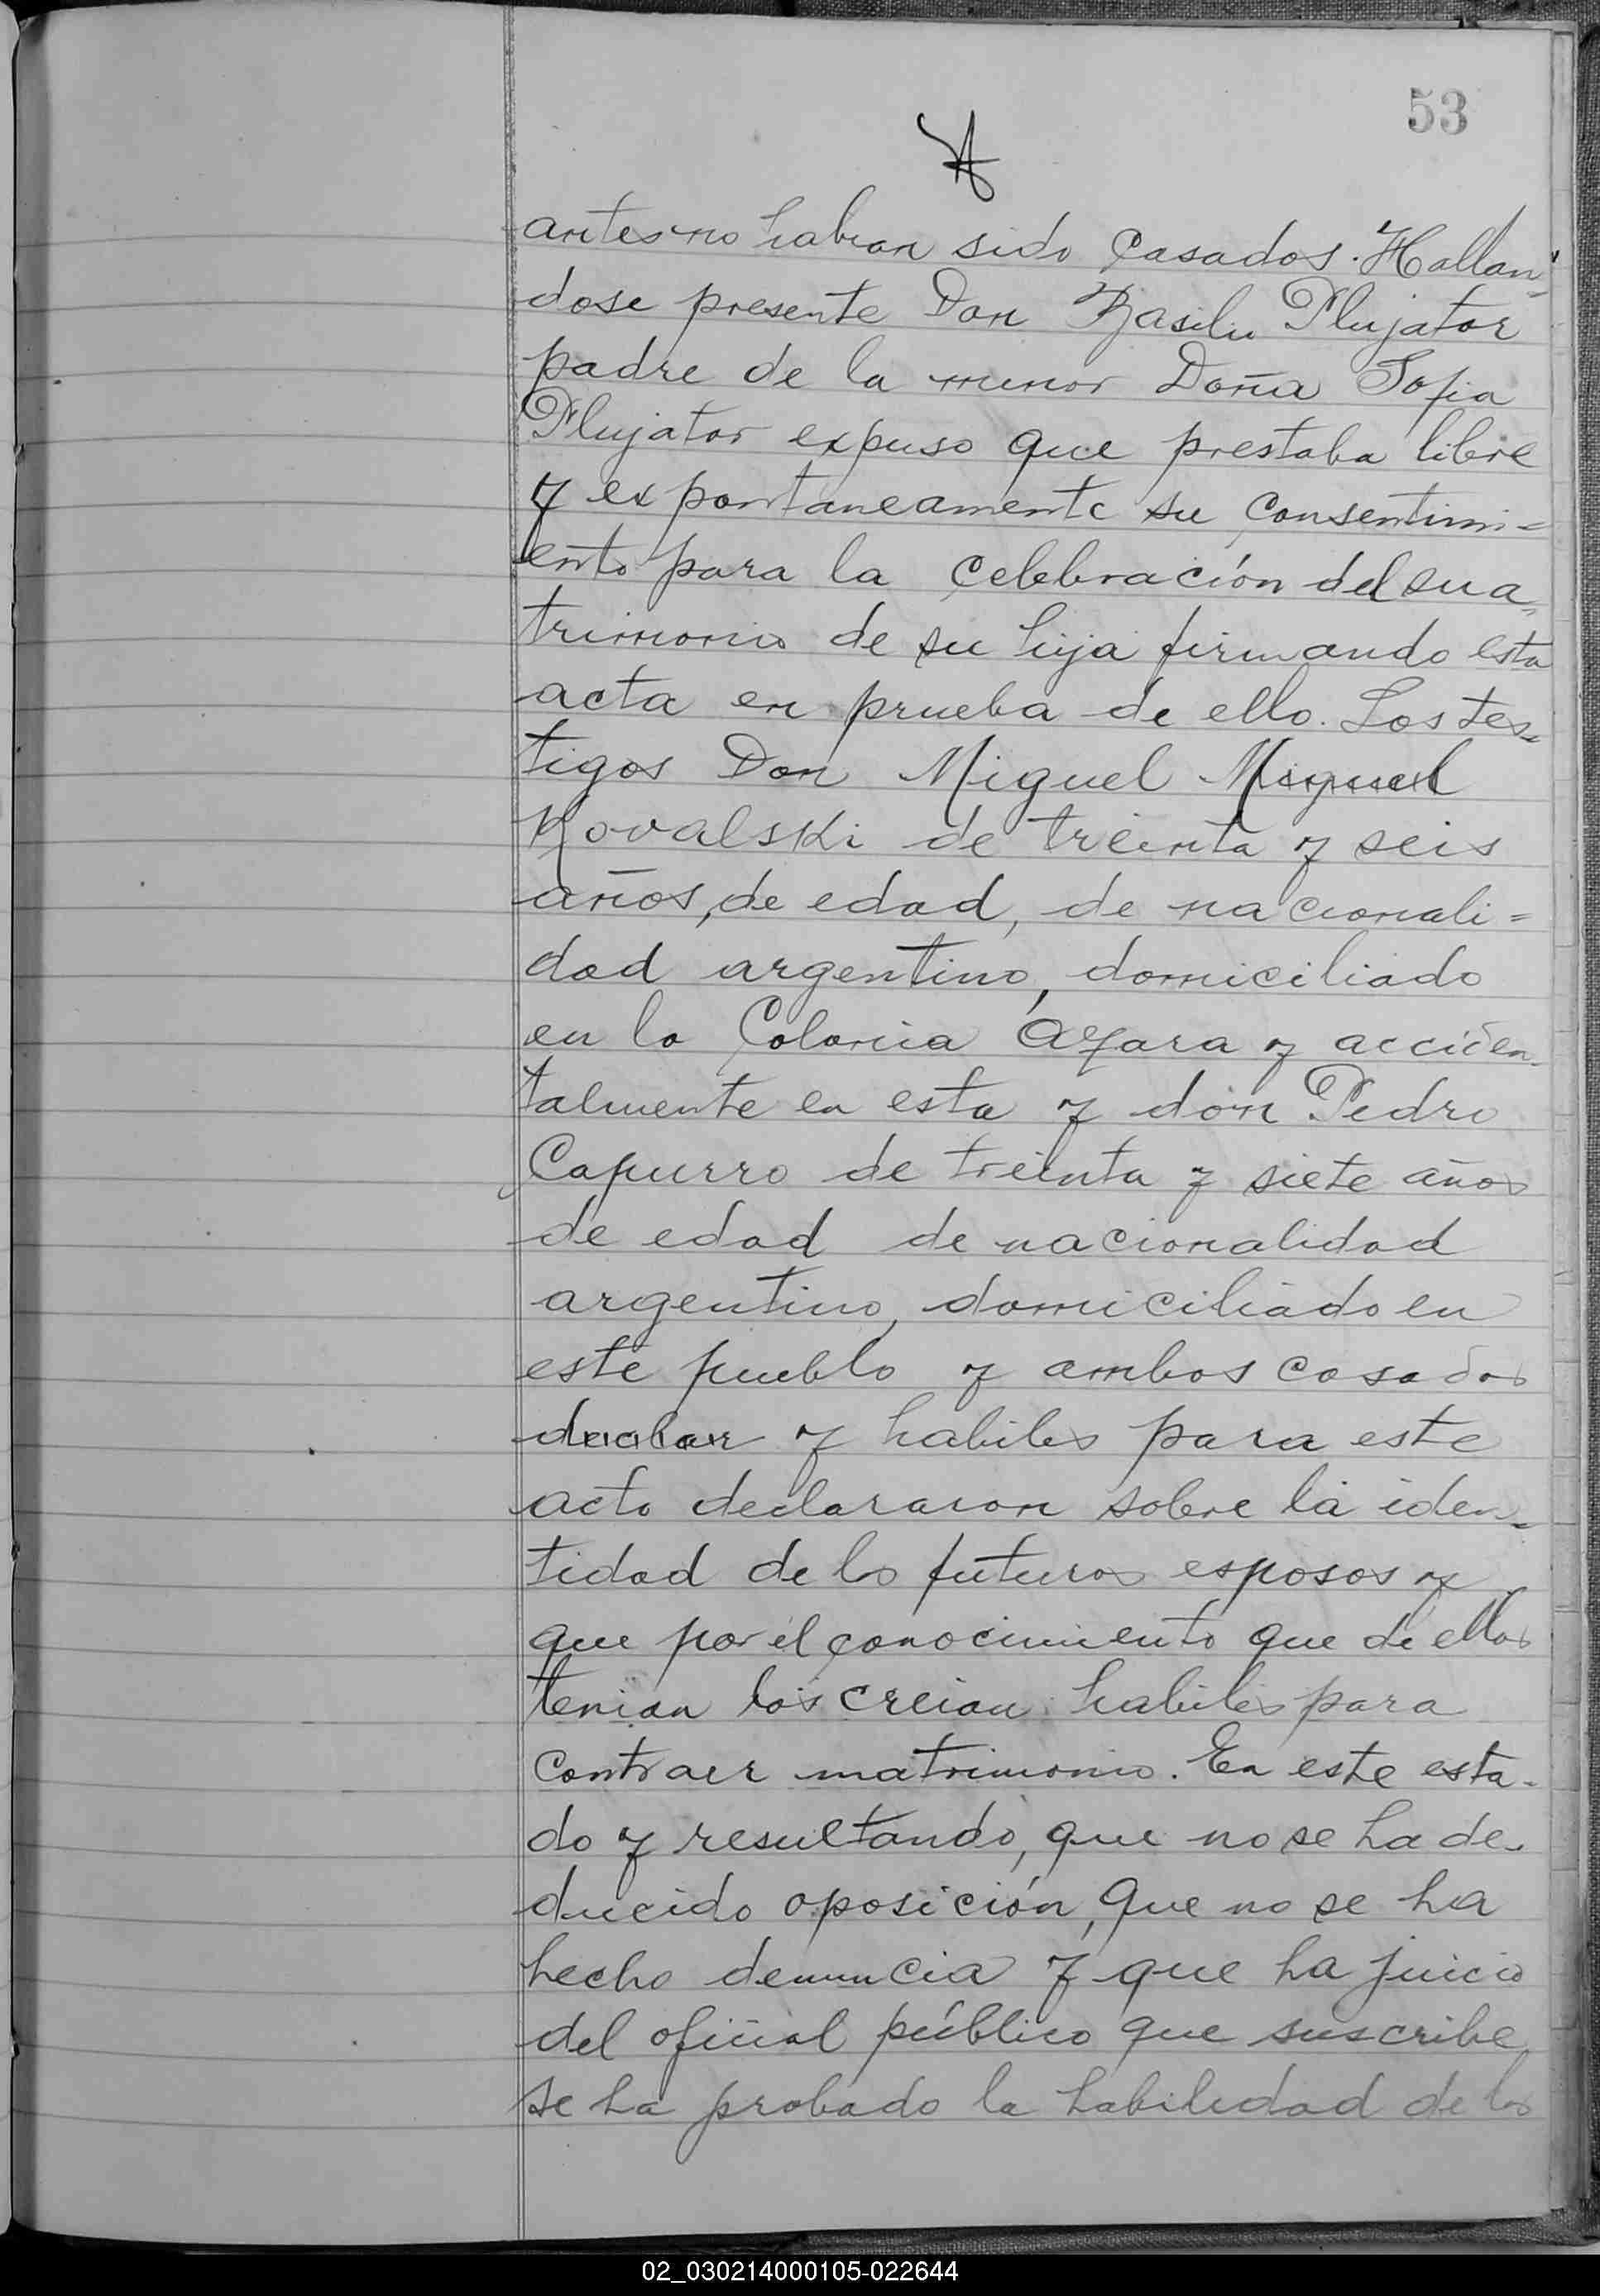 53
antes no habian sido casados. Hallan-
dose presente Don Basilio Plujator
padre de la menor Doña Sofia
Plujator expuso que prestaba libre
y expontaneamente su consentimi=
ento para la celebración del ma-
trimonio de su hija firmando esta
acta en prueba de ello. Los tes-
tigos Don Miguel Miguel
Kovalski de treinta y seis
años, de edad, de nacionali=
dad argentino, domiciliado
en la Colonia Azara y acciden-
talmente en esta y don Pedro
Capurro de treinta y siete años
de edad de nacionalidad
argentino, domiciliado en
este pueblo y ambos casados
y habiles para este
acto declararon sobre la iden-
tidad de los futuros esposos y
que por el conocimiento que de ellos
tenian los creian habiles para
contraer matrimonio. En este esta-
do y resultando, que no se ha de-
ducido oposición, que no se ha
hecho denuncia y que ha juicio
del oficial público que suscribe
se ha probado la habilidad de los
02_030214000105-022644